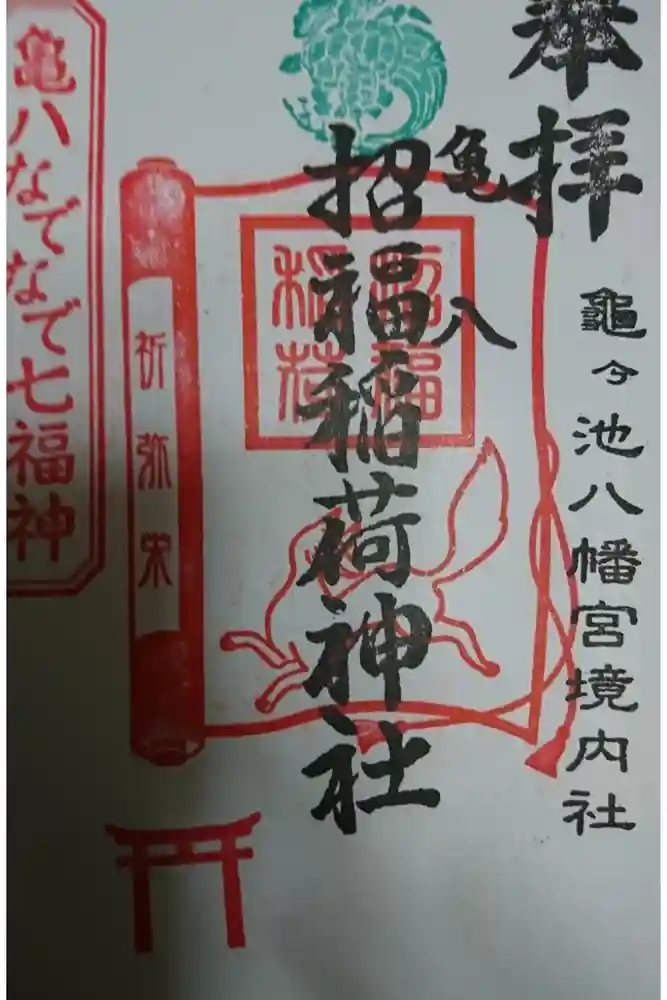 奉拝
龜ヶ池八幡宮境内社
亀八
招福稲荷神社
招福
稲荷
亀八なでなで七福神